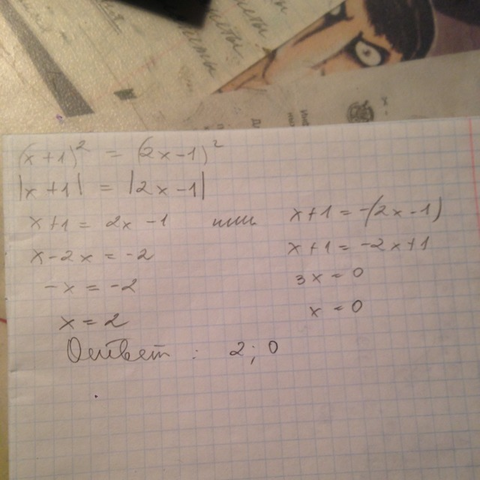 (x+1)² = (2x-1)²
|x+1| = |2x-1|
x+1 = 2x-1 или x+1 = -(2x-1)
x-2x = -2 x+1 = -2x+1
-x = -2 3x = 0
x = 2 x = 0
Ответ : 2; 0